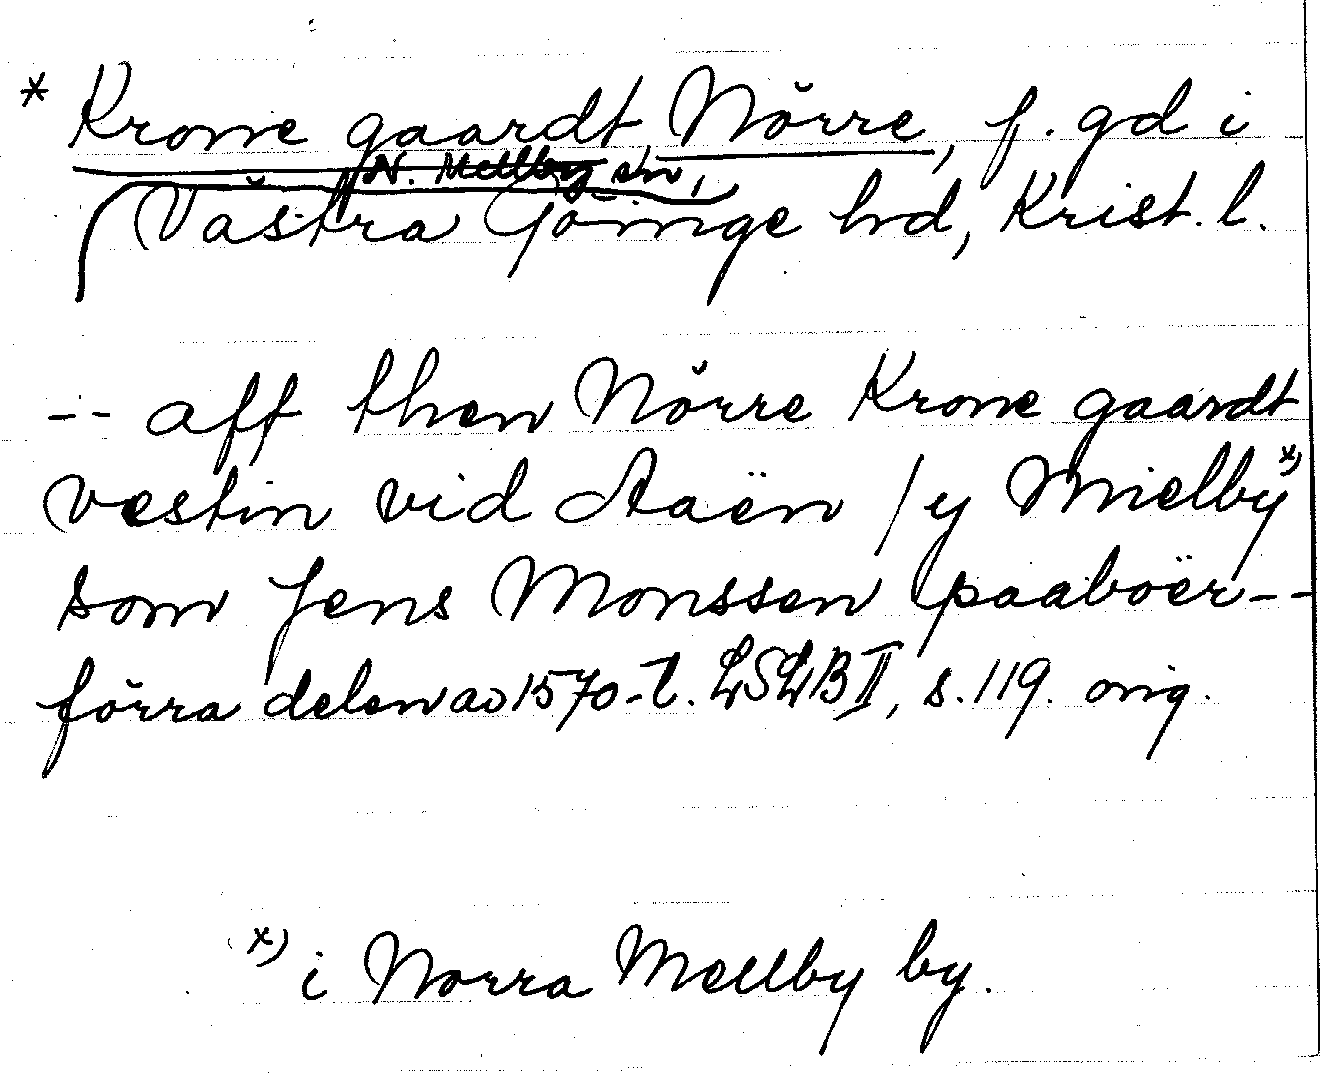 * Krone gaardt, Nörre, f. gd i
N. Mellby sn,
Västra Göinge hd, Krist. l.
-- aff then Nörre Krone gaardt
vestin vid Aaën / y Mielby x)
som Jens Monssen paaboër--
förra delen av 1570-t. LSLB II, s. 119. orig.
x) i Norra Mellby by.